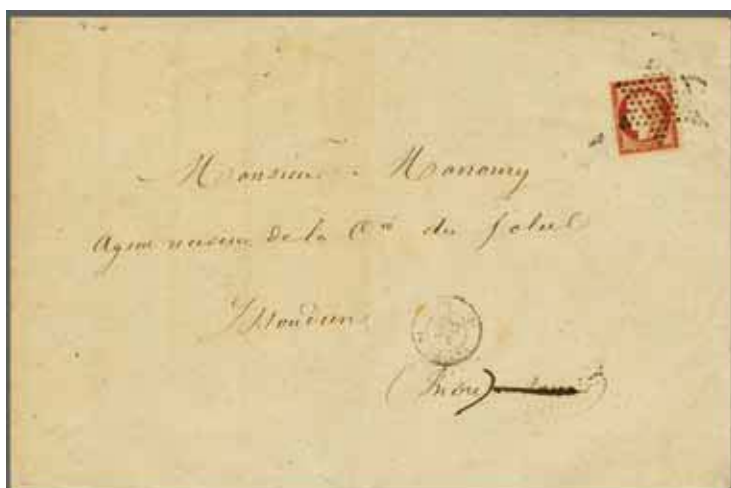 Monsieur Manoury
Agent receveur de la Cie du Soleil
Issoudun
(Indre)